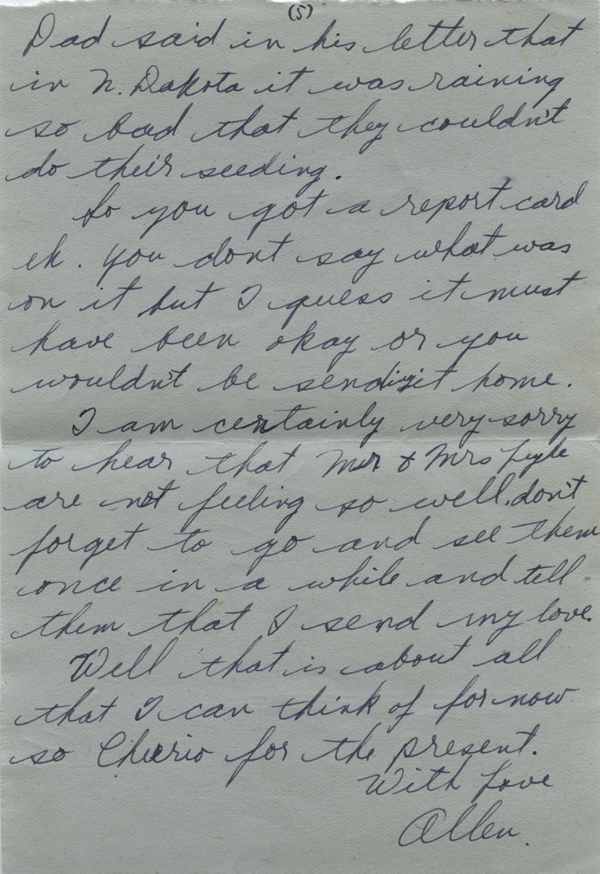 (5)
Dad said in his letter that
in N. Dakota it was raining
so bad that they couldn't
do their seeding.
So you got a report card
eh. you dont say what was
on it but I guess it must
have been okay or you
wouldn't be sending it home.
I am certainly very sorry
to hear that Mr & Mrs Lyle
are not feeling so well. don't
forget to go and see them
once in a while and tell
them that I send my love.
Well that is about all
that I can think of for now
so Cheerio for the present.
With Love
Allen.